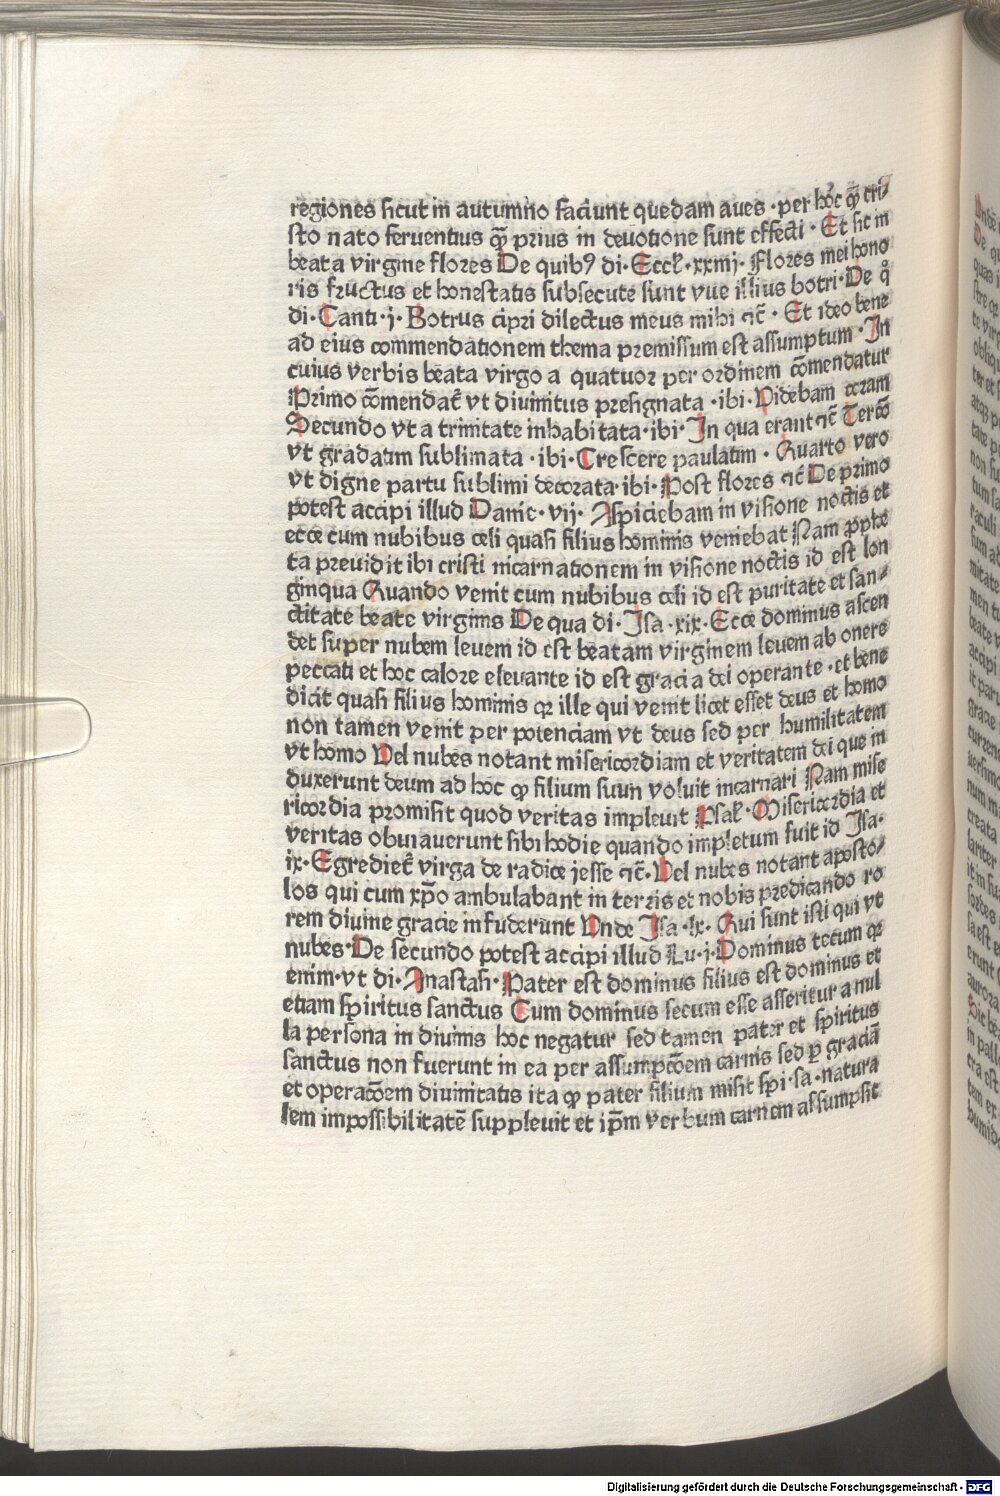 regiones sicut in autumno faciunt quedam aues · per hoc ꝙ cri⸗
sto nato feruentius ꝙ̄ prius in deuotione sunt effecti · Et sic in
beata virgine flores De quibꝰ di · Eccl̓ · xxiiij · Flores mei hono
ris fructus et honestatis subsecute sunt vue illius botri · De q̊
di · Canti · j · Botrus cipri dilectus meus mihi ⁊c̄ · Et ideo bene
ad eius commendationem thema premissum est assumptum · In
cuius verbis beata virgo a quatuor per ordinem cōmendatur
Primo cōmendat̄ vt diuinitus presignata · ibi · Videbam coram
Secundo vt a trinitate inhabitata · ibi · In qua erant ⁊c̄ Tercō
vt gradatim sublimata · ibi · Crescere paulatim · Quarto vero
vt digne partu sublimi decorata · ibi · Post flores ⁊c̄ De primo
potest accipi illud Danie̓ · vij · Aspiciebam in visione noctis et
ecce cum nubibus celi quasi filius hominis veniebat Nam ꝓphe
ta preuidit ibi cristi incarnationem in visione noctis id est lon
ginqua Quando venit cum nubibus celi id est puritate et san⸗
ctitate beate virginis De qua di · Isa · xix · Ecce dominus ascen
det super nubem leuem id est beatam virginem leuem ab onere
peccati et hoc calore eleuante id est gracia dei operante · et bene
dicit quasi filius hominis qꝛ ille qui venit licet esset deus et homo
non tamen venit per potenciam vt deus sed per humilitatem
vt homo Vel nubes notant misericordiam et veritatem dei que in
duxerunt deum ad hoc ꝙ filium suum voluit incarnari Nam mise
ricordia promisit quod veritas impleuit Psal̓ · Misericordia et
veritas obuiauerunt sibi hodie quando impletum fuit id Isa ·
ix · Egrediet̄ virga de radice iesse ⁊c̄ · Vel nubes notant aposto⸗
los qui cum xp̄o ambulabant in terris et nobis predicando ro
rem diuine gracie infuderunt Vnde Isa · lx · Qui sunt isti qui vt
nubes · De secundo potest accipi illud Lu · j · Dominus tecum qꝛ
enim · vt di · Anastasi · Pater est dominus filius est dominus et
etiam spiritus sanctus Cum dominus secum esse asseritur a nul
la persona in diuinis hoc negatur sed tamen pater et spiritus
sanctus non fuerunt in ea per assumpcōem carnis sed ꝑ graciā
et operacōem diuinitatis ita ꝙ pater filium misit spi · sa · natura
lem impossibilitatē suppleuit et ip̄m verbum carnem assumpsit
Digitalisierung gefördert durch die Deutsche Forschungsgemeinschaft - DFG